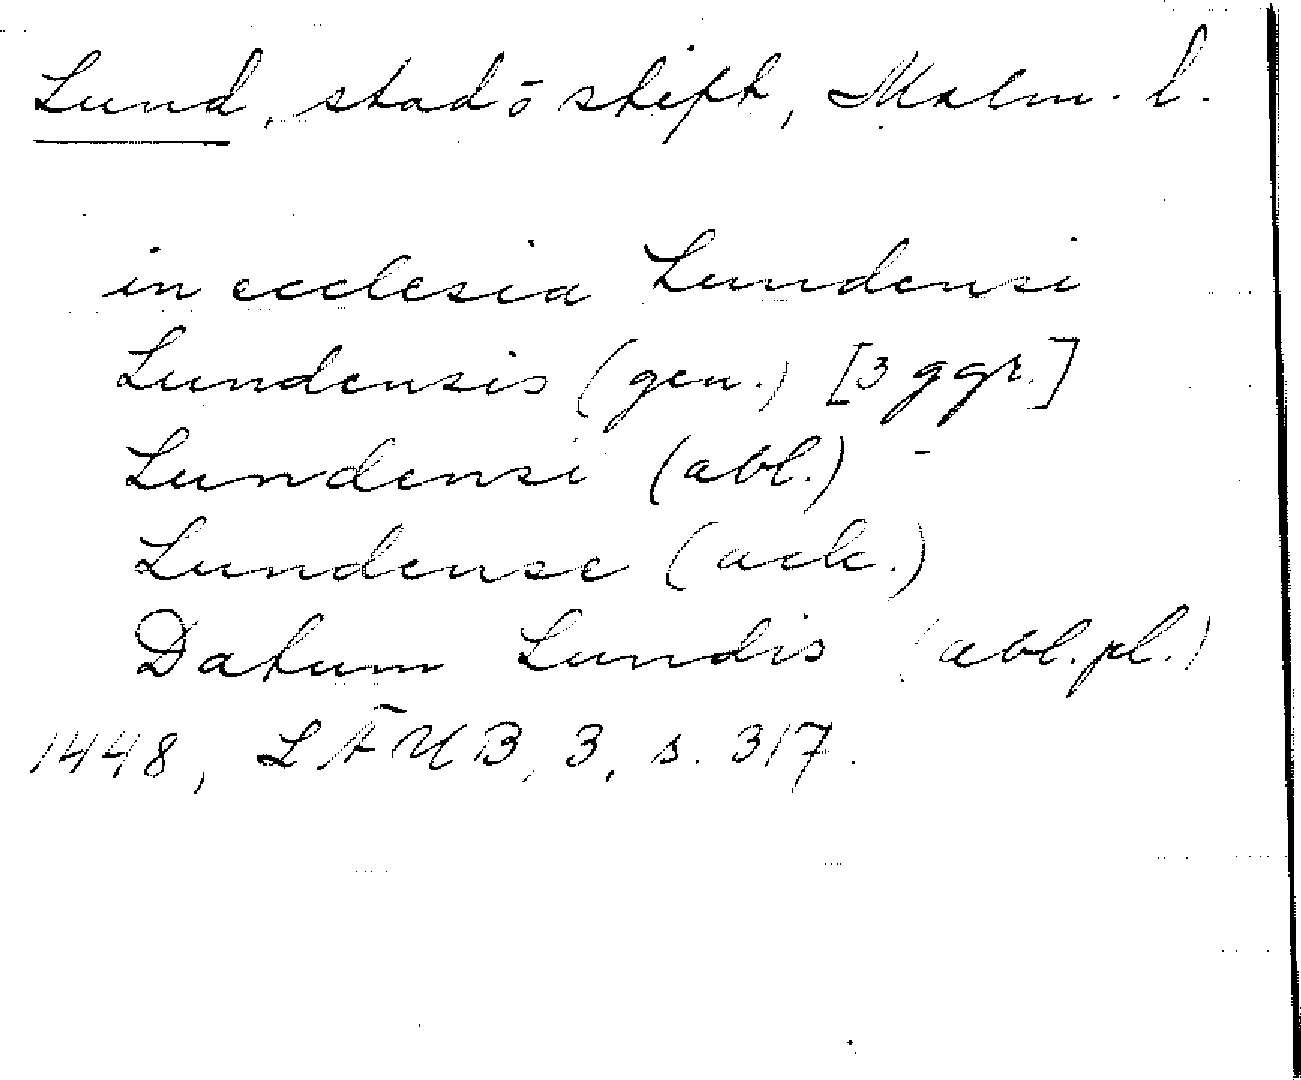 Lund, stad o stift, Malm. l.
in ecclesia Lundensi
Lundensis (gen.) [3 ggr.]
Lundensi (abl.)
Lundense (ack.)
Datum Lundis (abl. pl.)
1448, LÄUB, 3, s. 317.